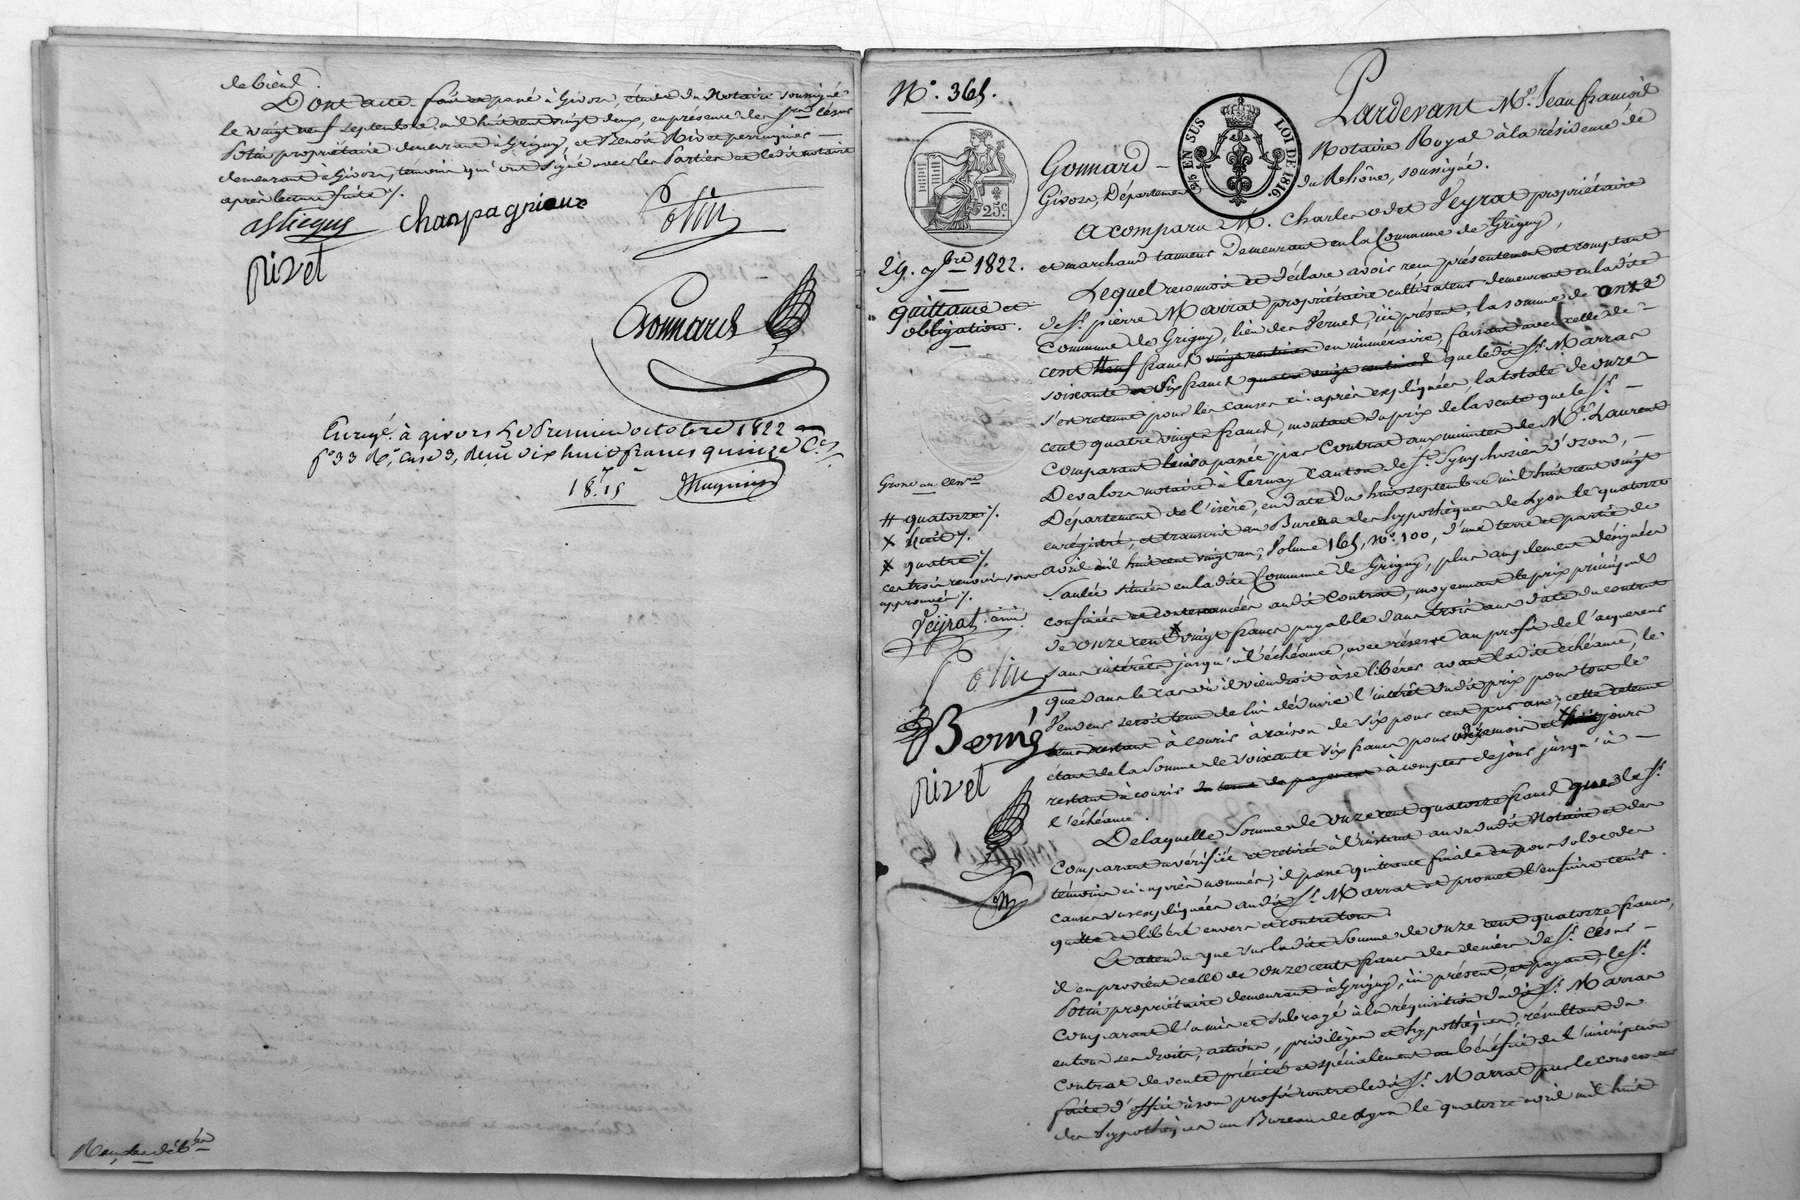 de biens.
Dont acte fait et passé à Givors, étude du Notaire soussigné
le vingt neuf septembre mil huit cent vingt deux, en présence de Srs César
Potin propriétaire demeurant à Grigny, et Benoit Rivet perruquier
demeurant à Givors, témoins qui ont signé avec les Parties et ledit notaire
après lecture faite ./.
Champagnieux
Potin
Rivet
Gonnard
Enregé. à givors Le Premier octobre 1822
fo 33 Ro, case 3, reçu dix huit francs quinze Ces
18. 15
No. 365.
Pardevant Me. Jean françois
Gonnard Notaire Royal à la résidence de
Givors, Département du Rhône, soussigné.
25c
3/5 EN SUS LOI DE 1816.
A comparu M. Charles Veyrat propriétaire
et marchand tanneur demeurant en la Commune de Grigny,
29. 7bre 1822.
quittance et
obligation.
Lequel reconnoit et déclare avoir reçu présentement et comptant
de Sr. pierre Marrat propriétaire cultivateur demeurant en ladite
Commune de Grigny, lieu des Vernes, ici présent, la somme de onze
cent francs en numéraire, faisant avec celle de
soixante six francs que ledit Sr. Marrat
s'est retenue pour les causes ci-après expliquées, la totale de onze
cent quatre vingt francs, montant du prix de la vente que le Sr.
Comparant lui a passée par Contrat aux minutes de Me. Laurent
Devalors notaire à Ternay Canton de St. Symphorien d'ozon,
Département de l'isère, en date du huit septembre mil huit cent vingt
enregistré, et transcrit au Bureau des hypothèques de Lyon le quatorze
avril mil huit cent vingt un, Volume 165, No. 100, d'une terre et partie de
Saulée située en ladite Commune de Grigny, plus amplement désignée
confinée et contenancée audit Contrat, moyennant le prix principal
de onze cent vingt francs payable dans trois ans date du contrat
sans intérêts jusqu'à l'échéance, avec réserve au profit de l'acquéreur
que dans le cas où il viendroit à se libérer avant ladite échéance, le
Vendeur seroit tenu de lui déduire l'intérêt dudit prix pour tout le
tems restant à courir à raison de six pour cent par an, cette retenue
étant de la somme de soixante six francs pour mois et jours
restant à courir à compter de ce jour jusqu'à
l'échéance.
Grosse au
# quatorze ./.
x huit ./.
x quatre ./.
ces trois renvois sont
approuvés ./.
Veyrat ainé
Potin
Rivet
De laquelle somme de onze cent quatorze francs que le Sr.
Comparant a vérifiée et retirée à l'instant au vu dudit Notaire et des
témoins ci-après nommés, il passe quittance finale et pour solde des
causes susexpliquées audit Sr. Marrat et promet l'en faire tenir
quitte et libéré envers et contre tous.
Et attendu que sur ladite somme de onze cent quatorze francs,
il en provient celle de onze cents francs des deniers de Sr. César
Potin propriétaire demeurant à Grigny, ici présent, et payant, le Sr.
Comparant l'a mis et subrogé à la réquisition dudit Sr. Marrat
en tous ses droits, actions, privilèges et hypothèques, résultant du
contrat de vente précité et spécialement au bénéfice de l'inscription
faite d'office à son profit contre ledit Sr. Marrat par le conservateur
des hypothèques au Bureau de Lyon le quatorze avril mil huit